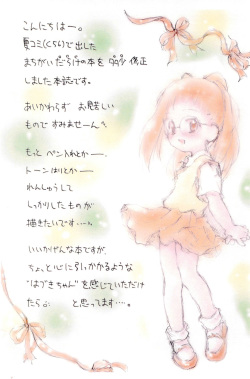 こんにちはー。
夏コミ(C56)で出した
まちがいだらけの本を 99% 修正
しました本誌です。
あいかわらず お見苦しい
ものですみませーん
もっと ペン入れとかー
トーンはりとかー
れんしゅうして
しっかりしたものが
描きたいですー
いいかげんな本ですが、
ちょっと心に引っかかるような
"はづきちゃん"を感じていただけ
たらぁ と思ってます…。